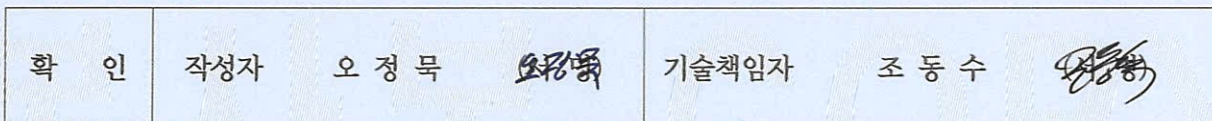 확 인 작성자 오 정 묵 기술책임자 조 동 수